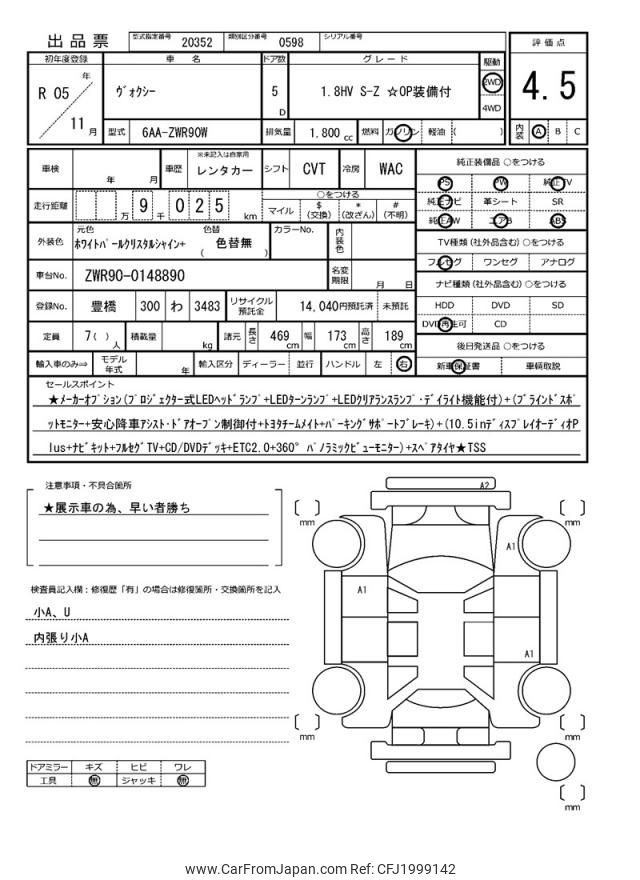 出品票 型式指定番号 20352 類別区分番号 0598 シリアル番号
評価点
初年度登録 車名 ドア数 グレード 駆動
R 05 年 ヴォクシー 5 D 1.8HV S-Z ☆OP装備付 2WD 4.5
11 月 4WD
型式 6AA-ZWR90W 排気量 1.800 cc 燃料 ガソリン 軽油 ( ) 内装 A B C
車検 年 月 車歴 ※未記入は自家用 レンタカー シフト CVT 冷房 WAC
純正装備品 ○をつける
PS PW 純正TV
走行距離 万 9 千 0 2 5 km ○をつける
マイル $(交換) *(改ざん) #(不明)
純正ナビ 革シート SR
純正AW エアB ABS
外装色 元色 ホワイトパールクリスタルシャイン+ 色替 色替無 ( ) カラーNo. 内装色
TV種類(社外品含む) ○をつける
フルセグ ワンセグ アナログ
車台No. ZWR90-0148890 名変期限 月 日
ナビ種類(社外品含む) ○をつける
登録No. 豊橋 300 わ 3483 リサイクル預託金 14,040円預託済 未預託
HDD DVD SD
DVD再生可 CD
定員 7( ) 人 積載量 kg 諸元 長さ 469 cm 幅 173 cm 高さ 189 cm
後日発送品 ○をつける
輸入車のみ⇒ モデル年式 年 輸入区分 ディーラー 並行 ハンドル 左 右
新車保証書 車輌取説
セールスポイント
★メーカーオプション(プロジェクター式LEDヘッドランプ+LEDターンランプ+LEDクリアランスランプ・デイライト機能付)+(ブラインドスポ
ットモニター+安心降車アシスト・ドアオープン制御付+トヨタチームメイト+パーキングサポートブレーキ)+(10.5inディスプレイオーディオP
lus+ナビキット+フルセグTV+CD/DVDデッキ+ETC2.0+360°パノラミックビューモニター)+スペアタイヤ★TSS
注意事項・不具合箇所
★展示車の為、早い者勝ち
検査員記入欄:修復歴「有」の場合は修復箇所・交換箇所を記入
小A、U
内張り小A
ドアミラー キズ ヒビ ワレ
工具 無 ジャッキ 無
A2
[ ] mm [ ] mm
A1
A1
A1
[ ] mm [ ] mm
[ ] mm
www.CarFromJapan.com Ref: CFJ1999142